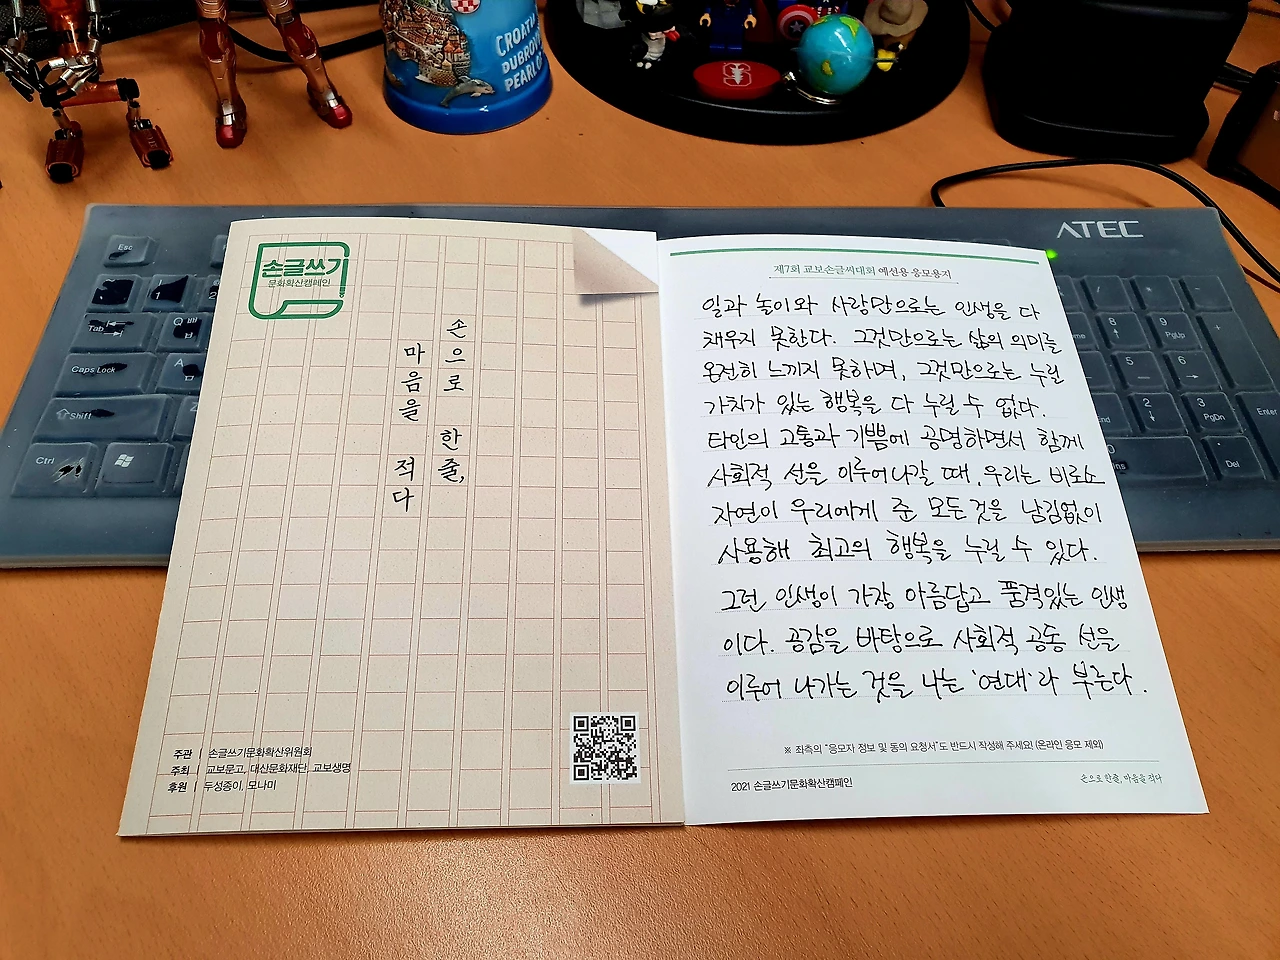 CROATIA
DUBROVNIK
PEARL OF
ATEC
Esc
Tab
Caps Lock
Shift
Ctrl
Q ㅂ
A
1
2
8
9
PgUp
5
6
2
3
PgDn
End
Ins
Del
Enter
손글쓰기
문화확산캠페인
손으로 한 줄,
마음을 적다
주관 | 손글쓰기문화확산위원회
주최 | 교보문고, 대산문화재단, 교보생명
후원 | 두성종이, 모나미
제7회 교보손글씨대회 예선용 응모용지
일과 놀이와 사랑만으로는 인생을 다
채우지 못한다. 그것만으로는 삶의 의미를
온전히 느끼지 못하며, 그것만으로는 누릴
가치가 있는 행복을 다 누릴 수 없다.
타인의 고통과 기쁨에 공명하면서 함께
사회적 선을 이루어나갈 때, 우리는 비로소
자연이 우리에게 준 모든것을 남김없이
사용해 최고의 행복을 누릴 수 있다.
그런 인생이 가장 아름답고 품격있는 인생
이다. 공감을 바탕으로 사회적 공동 선을
이루어 나가는 것을 나는 '연대'라 부른다.
※ 좌측의 "응모자 정보 및 동의 요청서"도 반드시 작성해 주세요! (온라인 응모 제외)
2021 손글쓰기문화확산캠페인
손으로 한 줄, 마음을 적다